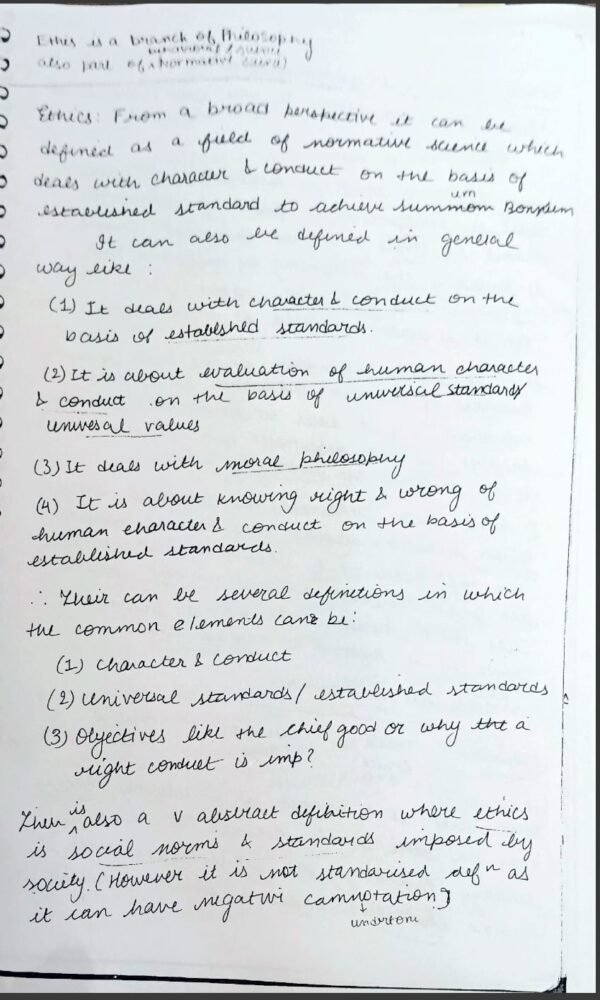 Ethis is a branch of Philosophy
behavioral /
also part of (Normative
Ethics: From a broad perspective it can be
defined as a field of normative science which
deals with character & conduct on the basis of
um
established standard to achieve summom Bonnum
It can also be defined in general
way like :
(1) It deals with character & conduct on the
basis of established standards.
(2) It is about evaluation of human character
& conduct on the basis of universal standards/
univesal values
(3) It deals with moral philosophy
(4) It is about knowing right & wrong of
human character & conduct on the basis of
established standards.
∴ Their can be several definitions in which
the common elements can be:
(1) Character & conduct
(2) Universal standards / established standards
(3) Objectives like the chief good or why tht a
right conduct is imp?
is
Ther also a v abstract definition where ethics
is social norms & standards imposed by
society. (However it is not standarised defn as
it can have negative camnotation]
undertone